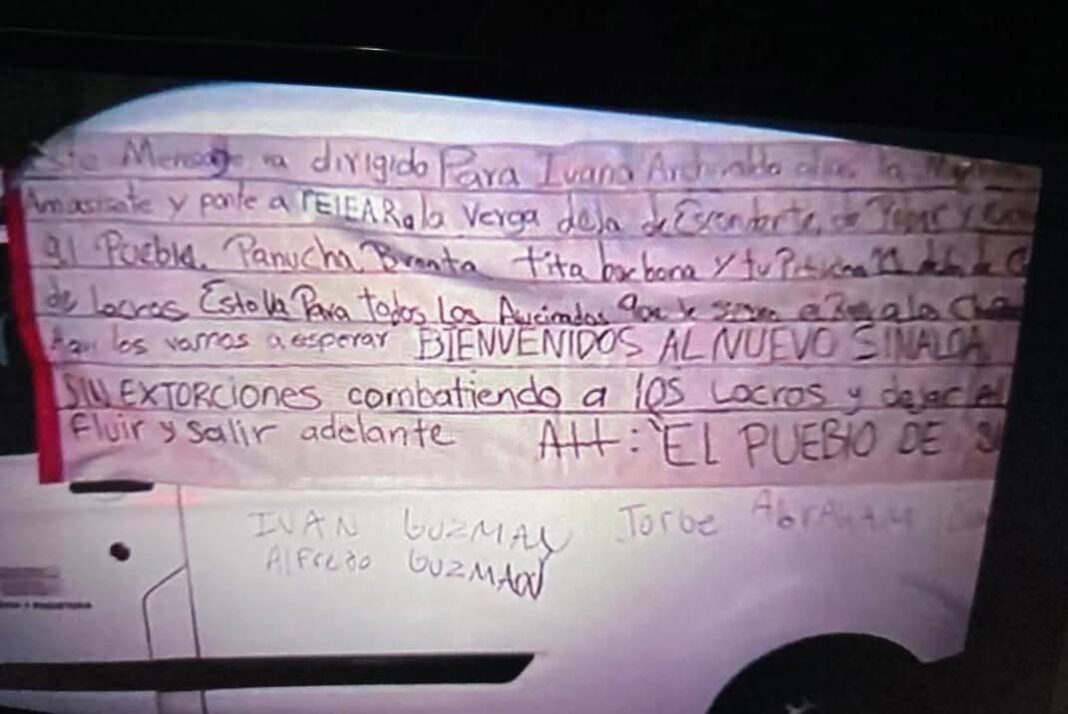 Este Mensage va dirigido Para Ivana Archivaldo alias la
Amacisate y ponte a PELEAR a la Verga deja de Esconderte, de Robar y
al Pueblo. Panucha Bronta tita barbona y tu
de Locras Esto Va Para todos los que te siguen
Aqui los vamos a esperar BIENVENIDOS AL NUEVO SINALOA
SIN EXTORCIONES combatiendo a los Locros y dejar
Fluir y salir adelante Att: "EL PUEBLO DE
IVAN GUZMAN Jorge AbrAHAM
AlFredo GUZMAN